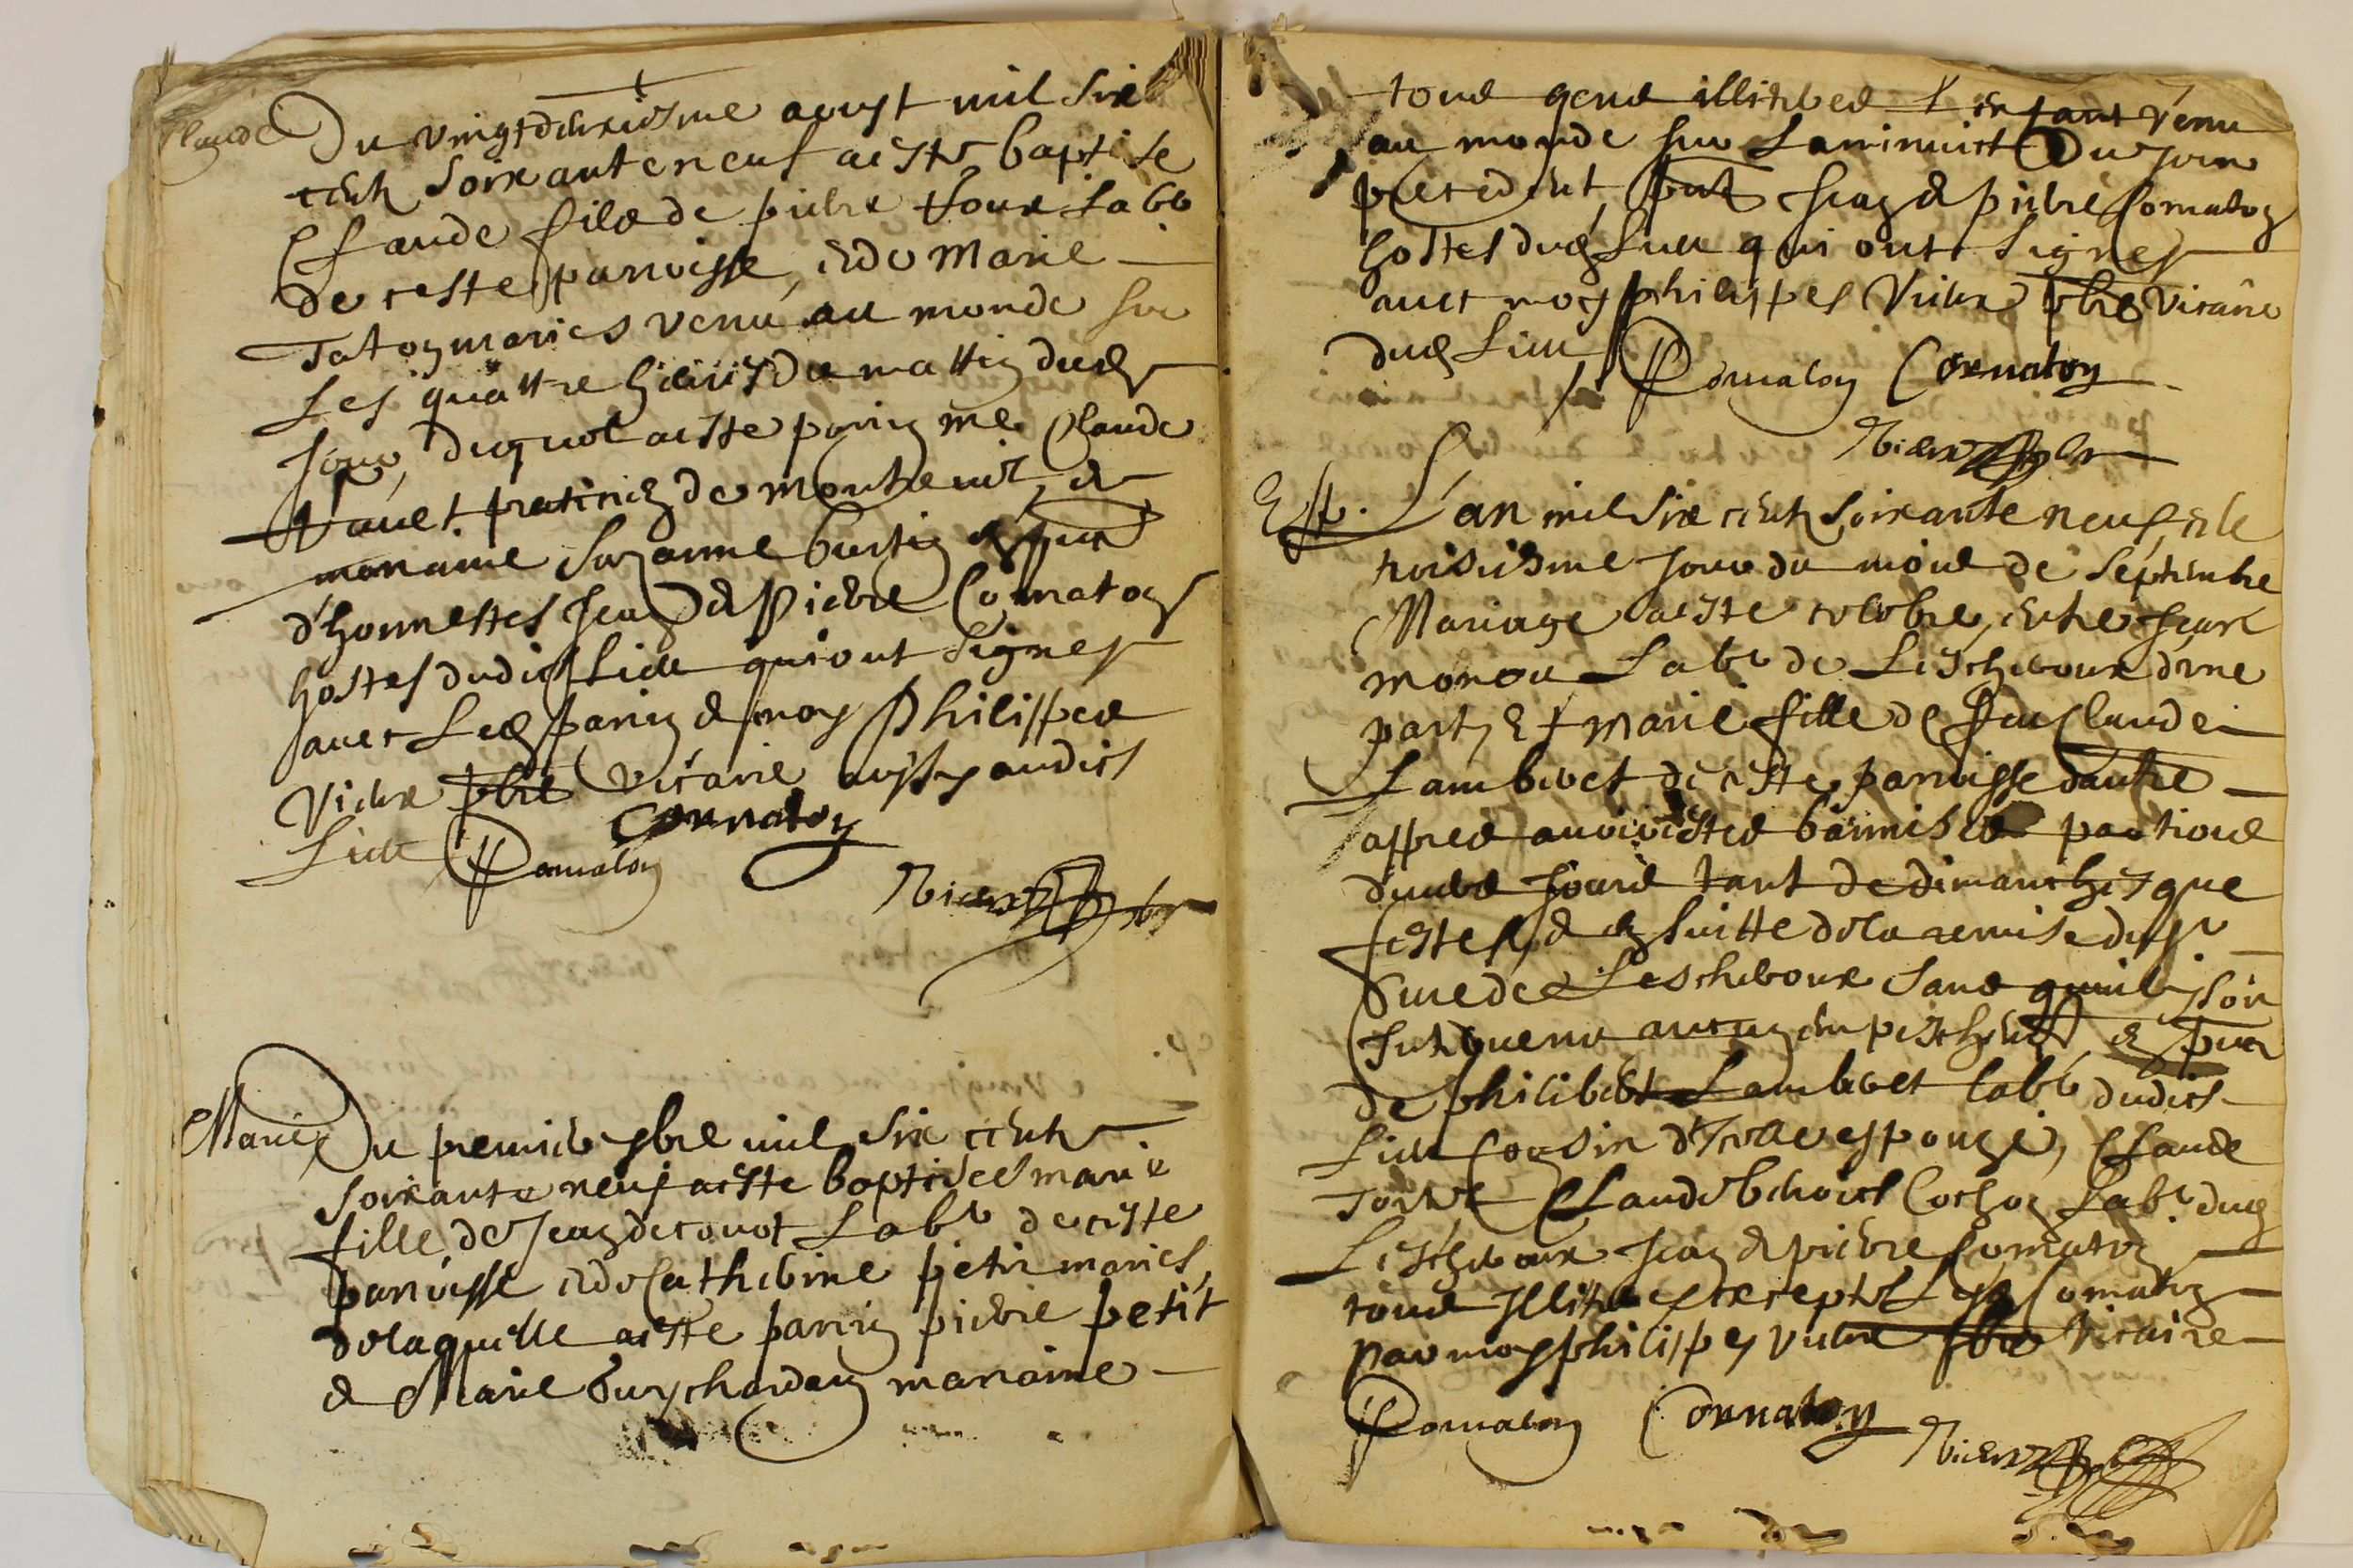 Claude
Du vingtdeuxiesme aoust mil six
cents soixante neuf a este baptise
Claude filz de pierre Labr
de ceste parroisse, et de Marie
maries venu au monde sur
Les quattre heures du mattin dud
Jour, duquel a este parrin me Claude
pratticien de et
marraine Suzanne pnts
d'honnestes Jean et Pierre Cornaton
hostes dudict Lieu qui ont signes
avec Led parrin et moy Philippes
Vieux pbre vicaire audict
Lieu PCornaton Cornaton
Vieux pbr
Marie
Du premier 7bre mil six cents
soixante neuf a este baptisee marie
fille de Jean decouot Labr de ceste
parroisse et de Catherine petit maries,
de laquelle a este parrin pierre petit
et Marie marraine
tous gens illiteres Lenfant venu
au monde sur La minuict Du jour
precedent, pnts Jean et pierre Cornaton
hostes dud Lieu qui ont signes
avec moy philippes Vieux pbre vicaire
dud Lieu
PCornaton Cornaton
Vieux pbr
L'an mil six cents soixante neuf, et le
troisiesme Jour du mois de septembre
Mariage a este celebre, entre Jean
Labr de Lescheroux d'une
part, Et Marie fille de feu Claude
Lambert de ceste parroisse d'autre
appres avoir estes par trois
divers Jours tant de dimanches que
festes, et en suitte de la remise du sr
Cure de Lescheroux sans quil y soit
Intervenu aucun empeschement, et pnts
de philibert Lambert labr dudict
Lieu Cousin d'Icelle espouze, Claude
Claude benoict Cochon Labr dud
Lescheroux Jean et pierre Cornaton
tous Illiteres excepter Les Cornaton
Par moy philippes Vieux pbre Vicaire
PCornaton Cornaton
Vieux